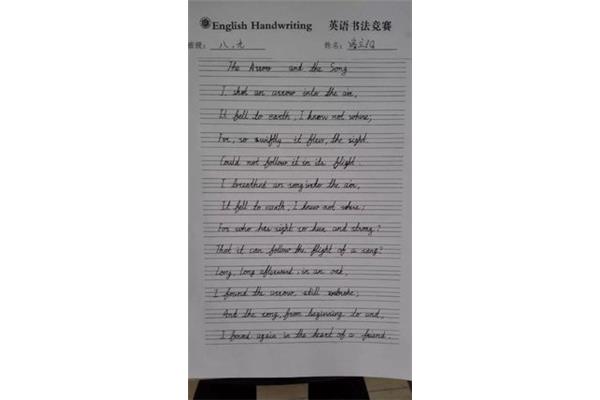 English Handwriting 英语书法竞赛
班级： 八、 姓名：
The Arrow and the Song
I shot an arrow into the air,
It fell to earth, I knew not where;
For, so swiftly it flew, the sight
Could not follow it in its flight.
I breathed an song into the air,
It fell to earth, I knew not where;
For who has sight so keen and strong?
That it can follow the flight of a song?
Long, Long afterward, in an oak,
I found the arrow, still unbroke;
And the song, from beginning to end,
I found again in the heart of a friend.